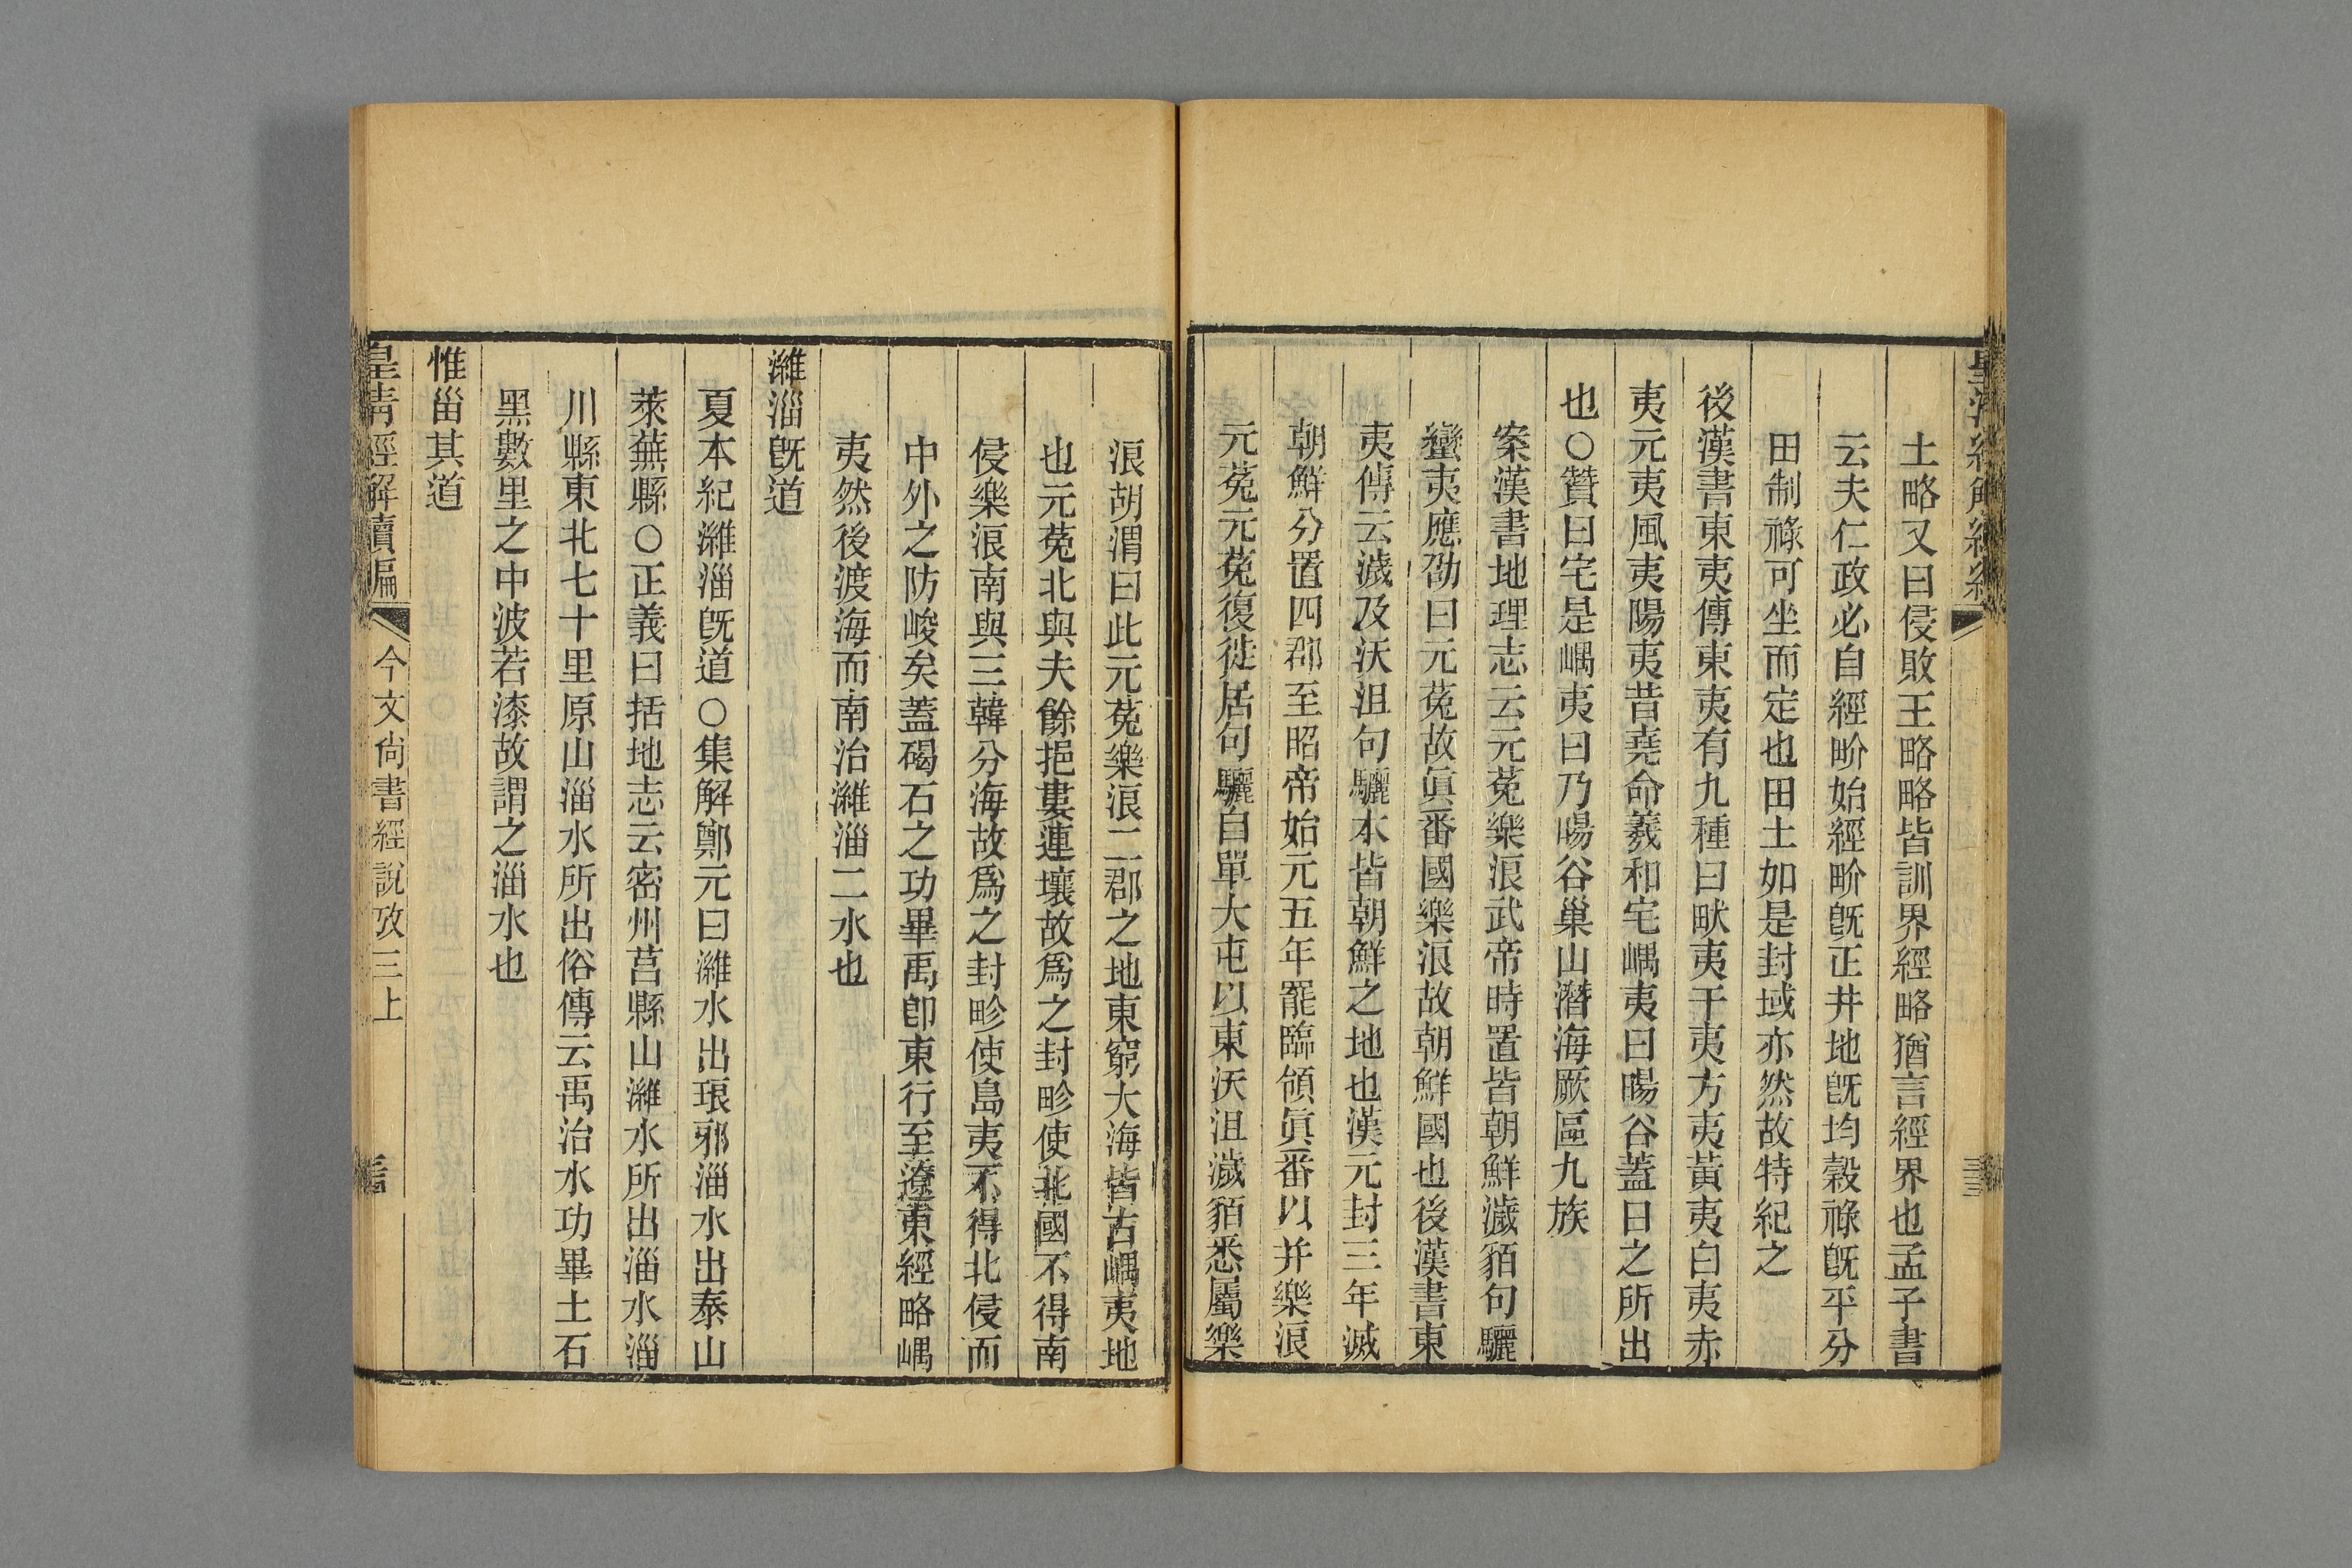 土略又曰侵敗王略略皆訓界經略猶言經界也孟子書
云夫仁政必自經畍始經畍旣正井地旣均穀祿旣平分
田制祿可坐而定也田土如是封域亦然故特紀之
後漢書東夷傳東夷有九種曰畎夷干夷方夷黃夷白夷赤
夷元夷風夷陽夷昔堯命羲和宅嵎夷曰暘谷蓋日之所出
也○贊曰宅是嵎夷曰乃暘谷巢山潛海厥區九族
案漢書地理志云元菟樂浪武帝時置皆朝鮮濊貊句驪
蠻夷應劭曰元菟故眞番國樂浪故朝鮮國也後漢書東
夷傳云濊及沃沮句驪本皆朝鮮之地也漢元封三年滅
朝鮮分置四郡至昭帝始元五年罷臨頜眞番以并樂浪
元菟元菟復徙居句驪自單大屯以東沃沮濊貊悉屬樂
浪胡渭曰此元菟樂浪二郡之地東窮大海皆古嵎夷地
也元菟北與夫餘挹婁連壤故爲之封畛使北國不得南
侵樂浪南與三韓分海故爲之封畛使島夷不得北侵而
中外之防峻矣蓋碣石之功畢禹卽東行至遼東經略嵎
夷然後渡海而南治濰淄二水也
濰淄旣道
夏本紀濰淄旣道○集解鄭元曰濰水出琅邪淄水出泰山
萊蕪縣○正義曰括地志云密州莒縣山濰水所出淄水淄
川縣東北七十里原山淄水所出俗傳云禹治水功畢土石
黑數里之中波若漆故謂之淄水也
惟甾其道
皇清經解續編
今文尙書經說攷三上